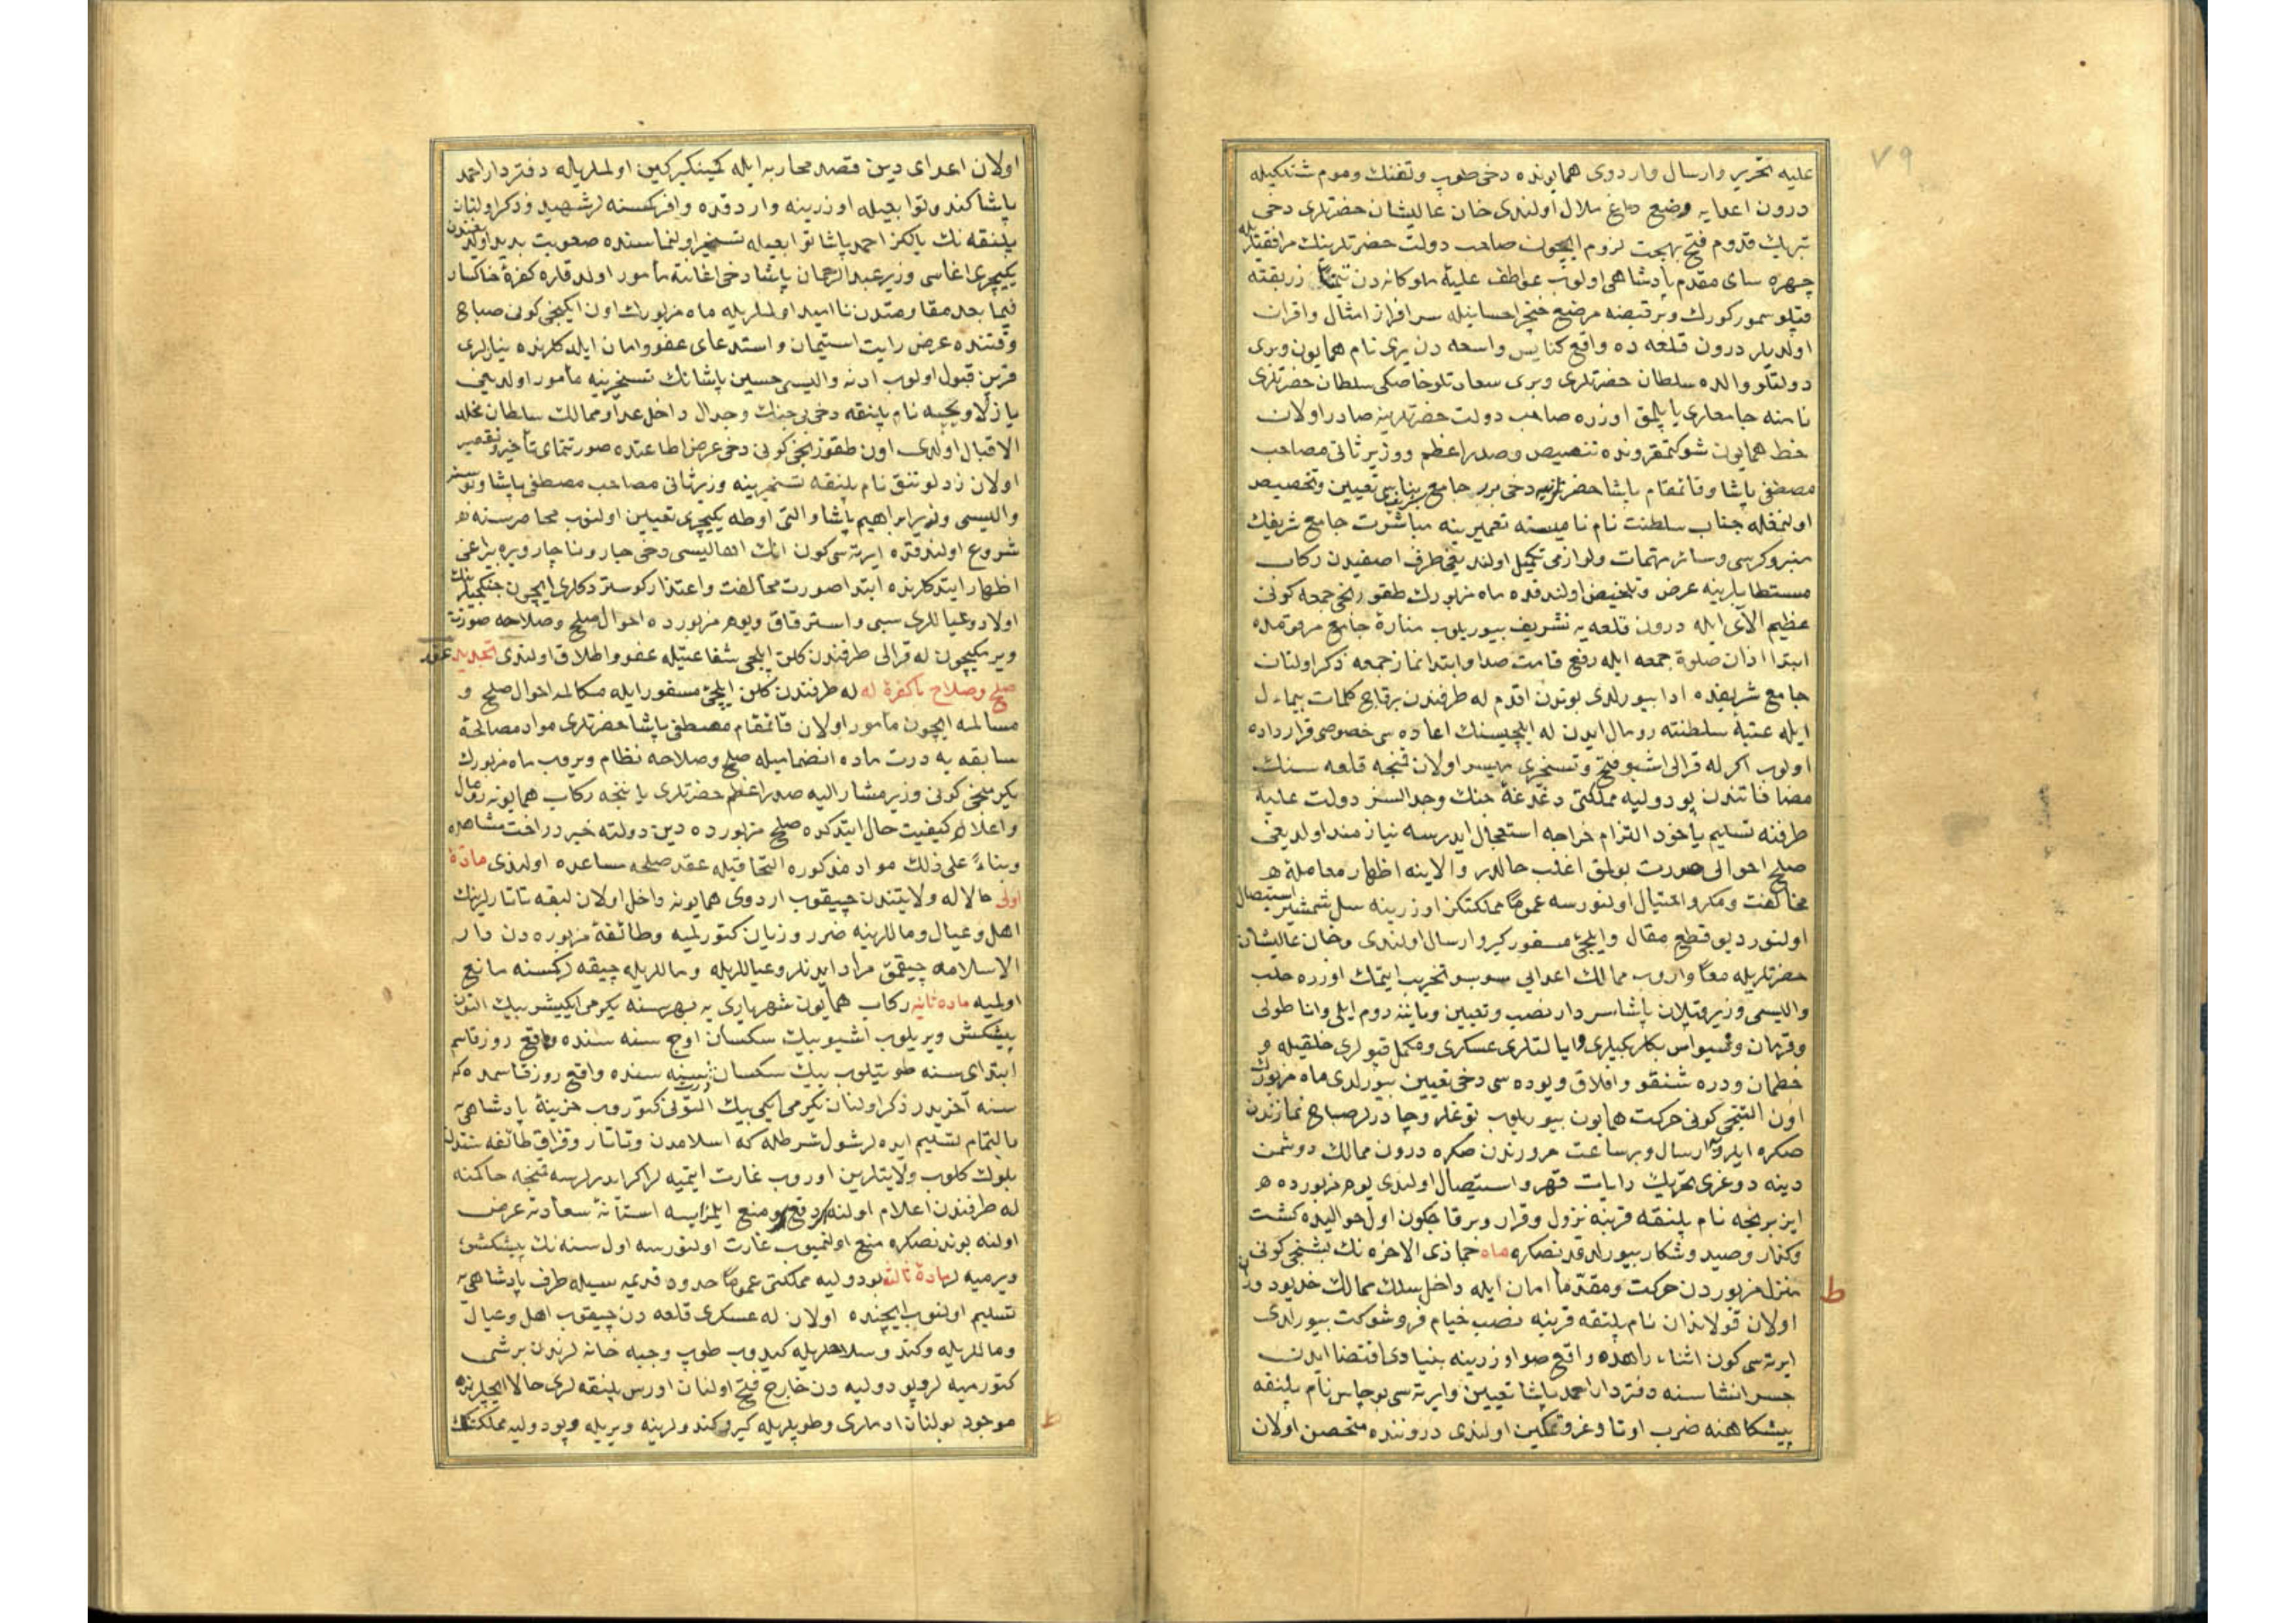 ٧٩
عليه تحرير وارسال واردوى همايونده دخى طوپ وتفنك وموم شنلكيله
درون اعدايه وضع داغ ملال اولندى خان عاليشان حضرتلرى دخى
تبريك قدوم فتح بهجت لزوم ايچون صاحب دولت حضرتلرينك مرافقتيله
چهره ساى مقدم پادشاهى اولوب عواطف عليۀ ملوكانه دن زربفته
قپلو سمور كورك وبر قبضه مرصع خنجر احسانيله سرافراز امثال واقران
اولديلر درون قلعه ده واقع كنايس واسعه دن برى نام همايون وبرى
دولتلو والده سلطان حضرتلرى وبرى سعادتلو خاصكى سلطان حضرتلرى
نامنه جامعلرى ياپلمق اوزره صاحب دولت حضرتلرينه صادر اولان
خط همايون شوكتمقرونده تنصيص وصدر اعظم ووزير ثانى مصاحب
مصطفى پاشا وقائمقام پاشا حضرتلرينه دخى برر جامع شريف بناسى تعيين وتخصيص
اولنمغله جناب سلطنت نام ناميسنه تعميرينه مباشرت جامع شريفك
منبر وكرسى وسائر مهمات ولوازمى تكميل اولنديغى طرف اصفيدن ركاب
مستطابلرينه عرض وتلخيص اولندقده ماه مزبورك طقوزنجى جمعه كونى
عظيم الآى ايله درون قلعه يه تشريف بيوريلوب منارۀ جامع مرقومده
ابتدا اذان صلوة جمعه ايله رفع قامت صدا وابتدا نماز جمعه ذكر اولنان
جامع شريفده ادا بيورلدى بوندن اقدم له طرفندن برقاچ كلمات بيمأل
ايله عتبۀ سلطنته رومال ايدن له ايلچيسنك اعاده سى خصوصى قرارداده
اولوب اكر له قرالى اشبو فتح وتسخيرى ميسر اولان قمنچه قلعه سنك
مضافاتندن پودوليه مملكتى دغدغۀ جنك وجدالسز دولت عليه
طرفنه تسليم ياخود التزام خراجه استعجال ايدرسه نيازمند اولديغى
صلح احوالى صورت بولمق اغلب حالدر والا ينه اظهار معاملۀ
مخالفت ومكر واحتيال اولنورسه عموما مملكتكز اوزرينه سل شمشير استيصال
اولنور ديو قطع مقال وايلچئ مسفور كيرو ارسال اولندى وخان عاليشان
حضرتلريله معاً واروب ممالك اعدايى سوبسو تخريب ايتمك اوزره حلب
واليسى وزير قپلان پاشا سردار نصب وتعيين وماينه روم ايلى واناطولى
وقرمان وسيواس بكلربكيلرى وايالتلرى عسكرى ومكمل قپولرى خلقيله و
خطمان ودره شنقو وافلاق ويوده سى دخى تعيين بيورلدى ماه مزبورك
اون التنجى كونى حركت همايون بيوريلوب توغلر وچادرلر صباح نمازندن
صكره ايلرو ارسال وبر ساعت مرورندن صكره درون ممالك دوشمن
دينه دوغرى تحريك رايات قهر واستيصال اولندى يوم مزبورده
ايزبرنجه نام پلنقه قربنه نزول وقرار وبرقاچ كون اول حواليده كشت
وكذار وصيد وشكار بيورلدقدنصكره ماه جماذى الاخره نك بشنجى كونى
منزل مزبوردن حركت ومقدّما امان ايله داخل سلك ممالك خديو دوران
اولان قولاندان نام پلنقه قربنه نصب خيام فروشوكت بيورلدى
ايرته سى كون اثناء راهده واقع صو اوزرينه بنيادى اقتضا ايدن
جسر انشاسنه دفتردار احمد پاشا تعيين وايرته سى بوچاس نام پلنقه
پيشكاهنه ضرب اوتاد وغروتمكين اولندى دروننده متحصن اولان
ط
اولان اعداى دين قصد محاربه ايله كمينكير كين اولملريله دفتردار احمد
پاشا كندو توابعيله اوزرينه واردقده وافر كمسنه لر شهيد وذكر اولنان
پلنقه نك يالكز احمد پاشا توابعيله تسخير اولنماسنده صعوبت بديد اولديغندن
يكيچرى اغاسى وزير عبدالرحمان پاشا دخى اعانته مأمور اولدقلرنده كفرۀ خاكسار
فيما بعد مقاومتدن نااميد اولملريله ماه مزبورك اون ايكنجى كونى صباح
وقتنده عرض رايت استيمان واستدعاى عفو وامان ايلدكلرنده نيازلرى
قرين قبول اولوب ادنه واليسى حسين پاشانك تسخيرينه مأمور اولديغى
يازلاويچه نام پلنقه دخى بى جنك وجدال داخل عداد ممالك سلطان مخلد
الاقبال اولدى اون طقوزنجى كونى دخى عرض اطاعتده صورتنماى تأخير وتقصير
اولان زدلوتنق نام پلنقه تسخيرينه وزير ثانى مصاحب مصطفى پاشا وبوسنه
واليسى وزير ابراهيم پاشا والتى اوطه يكيچرى تعيين اولنوب محاصره سنه
شروع اولندقده ايرته سى كون انك اهاليسى دخى چار وناچار ويره بيراغى
اظهار ايتدكلرنده ابتدا صورت مخالفت واعتذار كوستردكلرى ايچون جنكجيلرينك
اولاد وعياللرى سبى واسترقاق ويوم مزبورده احوال صلح وصلاحه صورت
ويرمكيچون له قرالى طرفندن كلن ايلچى شفاعتيله عفو واطلاق اولندى تجديد عقد
صلح وصلاح با كفرۀ له له طرفندن كلن ايلچئ مسفور ايله مكالمۀ احوال صلح و
مسالمه ايچون مأمور اولان قائمقام مصطفى پاشا حضرتلرى مواد مصالحۀ
سابقه يه درت ماده انضماميله صلح وصلاحه نظام ويروب ماه مزبورك
يكرمنجى كونى وزير مشاراليه صدر اعظم حضرتلرى ياننجه ركاب همايونه رومال
واعلام كيفيت حال ايتدكده صلح مزبورده دين دولته خير دراخت مشاهده
وبناءً على ذلك مواد مذكوره التحاقيله عقد صلحه مساعده اولندى مادّۀ
اولى حالا له ولايتندن چيقوب اردوى همايونه داخل اولان لبقه تاتارلرينك
اهل وعيال ومالرينه ضرر وزيان كتورلميه وطائفۀ مزبوره دن دار
الاسلامه چيقمق مراد ايدنلر وعياللريله ومالريله چيقه لر كمسنه مانع
اولميه مادۀ ثانيه ركاب همايون شهريارى يه بهر سنه يكرمى ايكيشر بيك التون
پيشكش ويريلوب اشبو بيك سكسان اوچ سنه سنده واقع روز قاسم
ابتداى سنه طوتيلوب بيك سكسان درت سنه سنده واقع روز قاسمده كه
سنه آخريدر ذكر اولنان يكرمى ايكى بيك التونى كتوروب خزينۀ پادشاهى يه
بالتمام تسليم ايده لر شول شرطله كه اسلامدن وتاتار وقزاق طائفه سندن
بلوك كلوب ولايتلرين اوروب غارت ايتميه لر اكر ايدرلرسه قمنچه حاكمنه
له طرفندن اعلام اولنه دفع ومنع ايلمزايسه استانۀ سعادته عرض
اولنه بوندنصكره منع اولنميوب غارت اولنورسه اول سنه نك پيشكشن
ويرميه لر مادۀ ثالثه پودوليه مملكتى عموماً حدود قديمه سيله طرف پادشاهى يه
تسليم اولنوب ايچنده اولان له عسكرى قلعه دن چيقوب اهل وعيال
ومالريله وكندو سلاحلريله كيدوب طوپ وجبه خانه لرندن برشى
كتورميه لر پودوليه دن خارج فتح اولنان اورس پلنقه لرى حالا ايچلرنده
موجود بولنان ادملرى وطوپلريله كيرو كندولرينه ويريله وپودوليه مملكتنك
ط